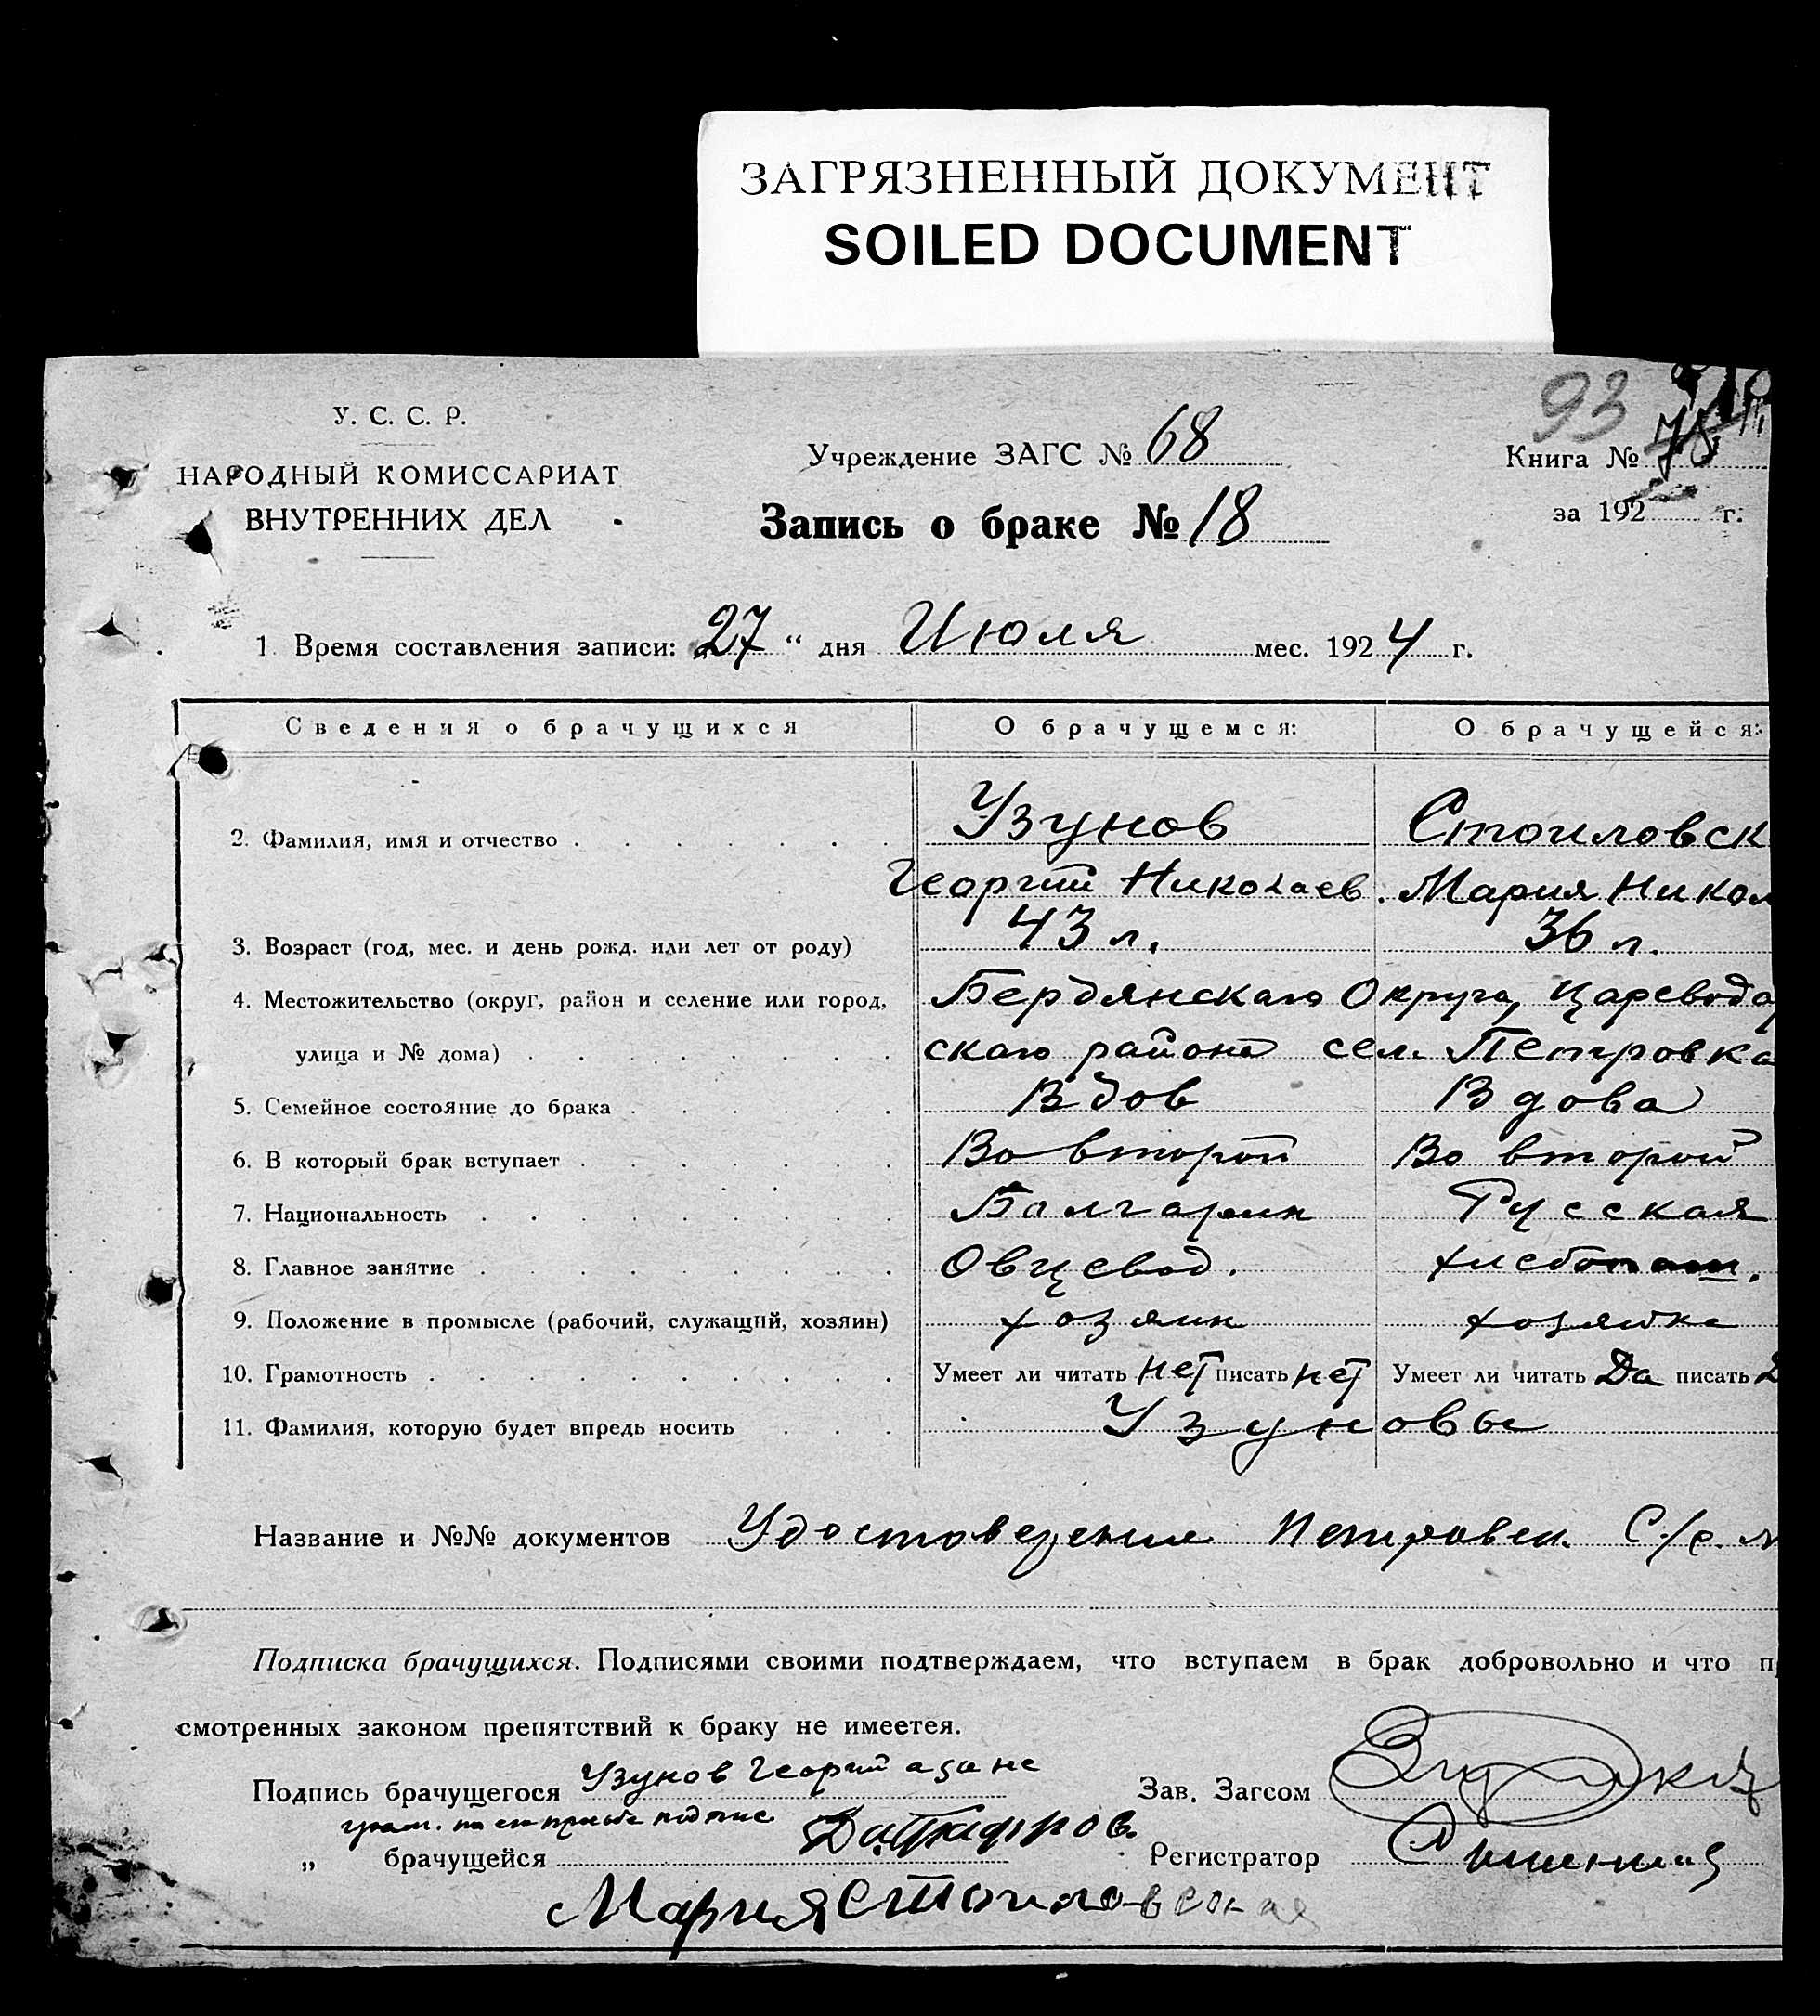 ЗАГРЯЗНЕННЫЙ ДОКУМЕНТ
SOILED DOCUMENT
93
У. С. С. Р.
НАРОДНЫЙ КОМИССАРИАТ
ВНУТРЕННИХ ДЕЛ
Учреждение ЗАГС № 68
Запись о браке № 18
Книга № 78
за 192 г.
1. Время составления записи: „27“ дня Июля мес. 1924 г.
Сведения о брачущихся О брачущемся: О брачущейся:
2. Фамилия, имя и отчество Узунов Стоиловск
Георгий Николаев. Мария Никол
3. Возраст (год, мес. и день рожд. или лет от роду) 43 л. 36 л.
4. Местожительство (округ, район и селение или город, Бердянского Округа, Царевода
улица и № дома) ского района сел. Петровка
5. Семейное состояние до брака Вдов Вдова
6. В который брак вступает Во второй Во второй
7. Национальность Болгарин Русская
8. Главное занятие Овцевод. хлебопаш.
9. Положение в промысле (рабочий, служащий, хозяин) хозяин хозяйка
10. Грамотность Умеет ли читать нет писать нет Умеет ли читать Да писать Д
11. Фамилия, которую будет впредь носить Узуновы
Название и №№ документов Удостоверения Петровск. С/с.
Подписка брачущихся. Подписями своими подтверждаем, что вступаем в брак добровольно и что п
смотренных законом препятствий к браку не имеетея.
Подпись брачущегося Узунов Георгий а за не
Зав. Загсом
грам. по его просьбе подпис
„ брачущейся
Регистратор
Мария Стоиловская